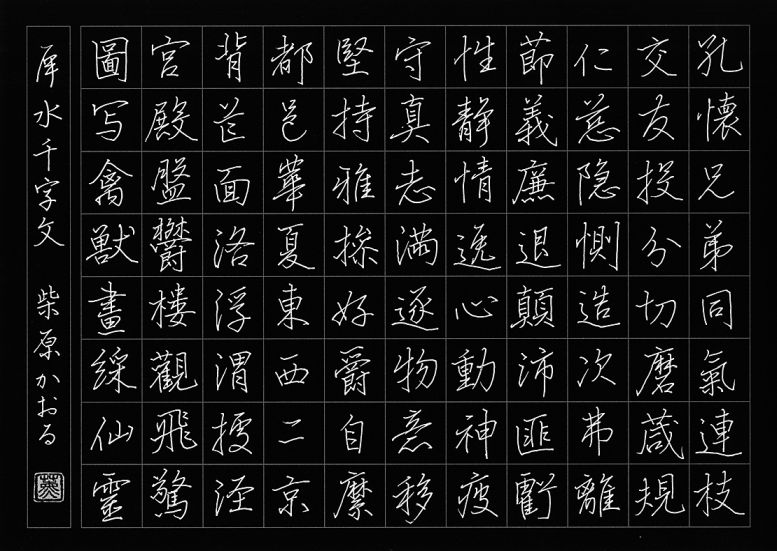 孔懐兄弟同氣連枝
交友投分切磨箴規
仁慈隐惻造次弗離
節義廉退顛沛匪虧
性静情逸心動神疲
守真志満逐物意移
堅持雅操好爵自縻
都邑華夏東西二京
背芒面洛浮渭據涇
宮殿盤欝樓觀飛驚
圖写禽獣畫綵仙靈
犀水千字文 柴原かおる